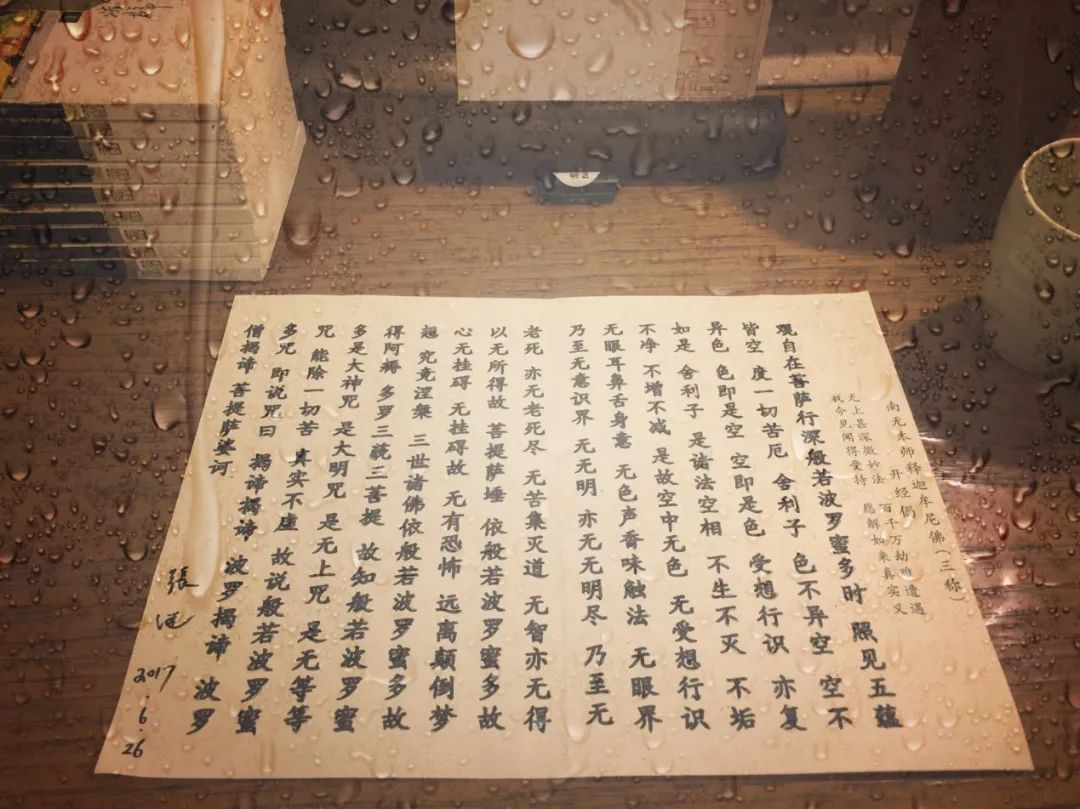 南无本师释迦牟尼佛（三称）
开经偈
无上甚深微妙法 百千万劫难遭遇
我今见闻得受持 愿解如来真实义
观自在菩萨行深般若波罗蜜多时 照见五蕴
皆空 度一切苦厄 舍利子 色不异空 空不
异色 色即是空 空即是色 受想行识 亦复
如是 舍利子 是诸法空相 不生不灭 不垢
不净 不增不减 是故空中无色 无受想行识
无眼耳鼻舌身意 无色声香味触法 无眼界
乃至无意识界 无无明 亦无无明尽 乃至无
老死 亦无老死尽 无苦集灭道 无智亦无得
以无所得故 菩提萨埵 依般若波罗蜜多故
心无挂碍 无挂碍故 无有恐怖 远离颠倒梦
想 究竟涅槃 三世诸佛依般若波罗蜜多故
得阿耨 多罗三藐三菩提 故知般若波罗蜜
多是大神咒 是大明咒 是无上咒 是无等等
咒 能除一切苦 真实不虚 故说般若波罗蜜
多咒 即说咒曰 揭谛揭谛 波罗揭谛 波罗
僧揭谛 菩提萨婆诃
張
2017.6.26